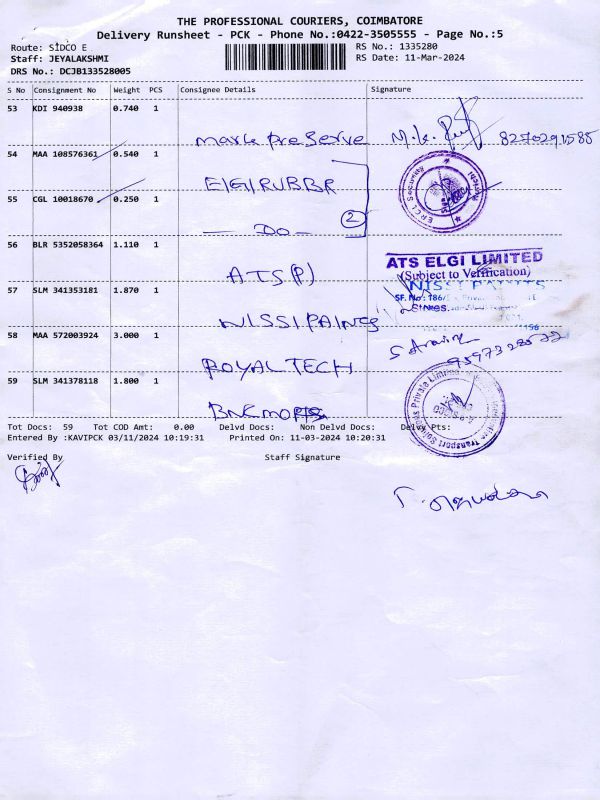 THE PROFESSIONAL COURIERS, COIMBATORE
Delivery Runsheet - PCK - Phone No.:0422-3505555 - Page No.:5
Route: SIDCO E
RS No.: 1335280
Staff: JEYALAKSHMI
RS Date: 11-Mar-2024
DRS No.: DCJB133528005
S No Consignment No Weight PCS Consignee Details Signature
53 KDI 940938 0.740 1
mark preServe
8270291585
54 MAA 108576361 0.540 1
ElGIRUBBR
55 CGL 10018670 0.250 1
— Do — 2
56 BLR 5352058364 1.110 1
ATS(P)
ATS ELGI LIMITED
(Subject to Verification)
NISSI PAINTS
57 SLM 341353181 1.870 1
SF. No: 186/
NISSIPAINTS
58 MAA 572003924 3.000 1
ROYALTECH
59 SLM 341378118 1.800 1
Tot Docs: 59 Tot COD Amt: 0.00 Delvd Docs: Non Delvd Docs: Delvy Pts:
Entered By :KAVIPCK 03/11/2024 10:19:31 Printed On: 11-03-2024 10:20:31
Verified By Staff Signature